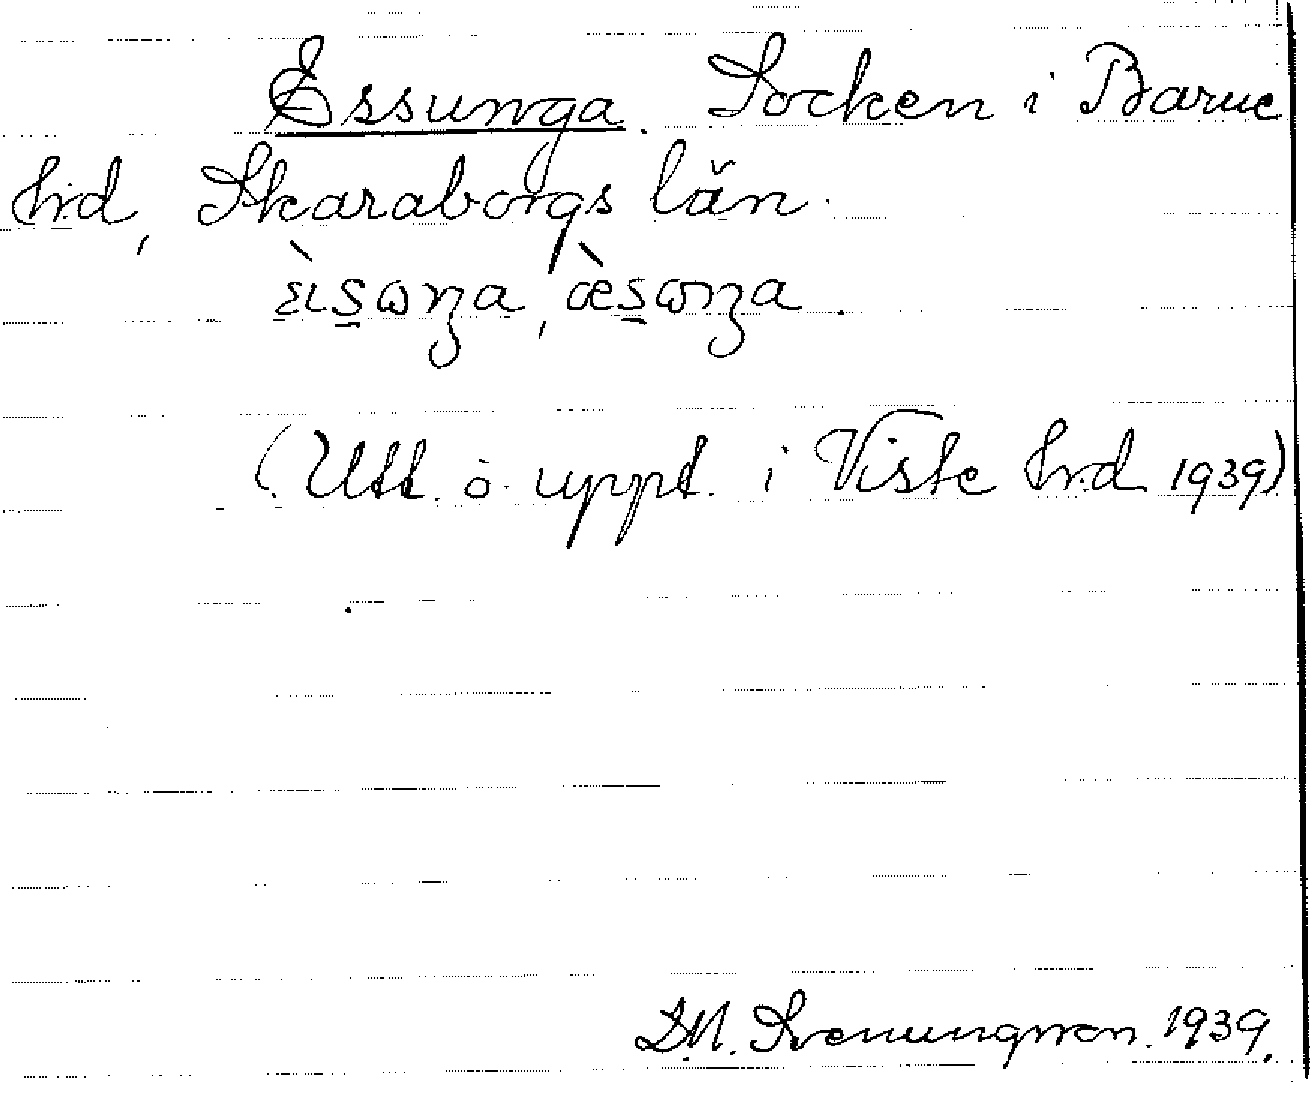 Essunga. Socken i Barne
hrd, Skaraborgs län.
ɛ̀ɩs̲ɷŋa, æ̀s̲ɷŋa.
(Utt. o. uppt. i Viste hrd 1939)
D.M. Svenungsson. 1939.